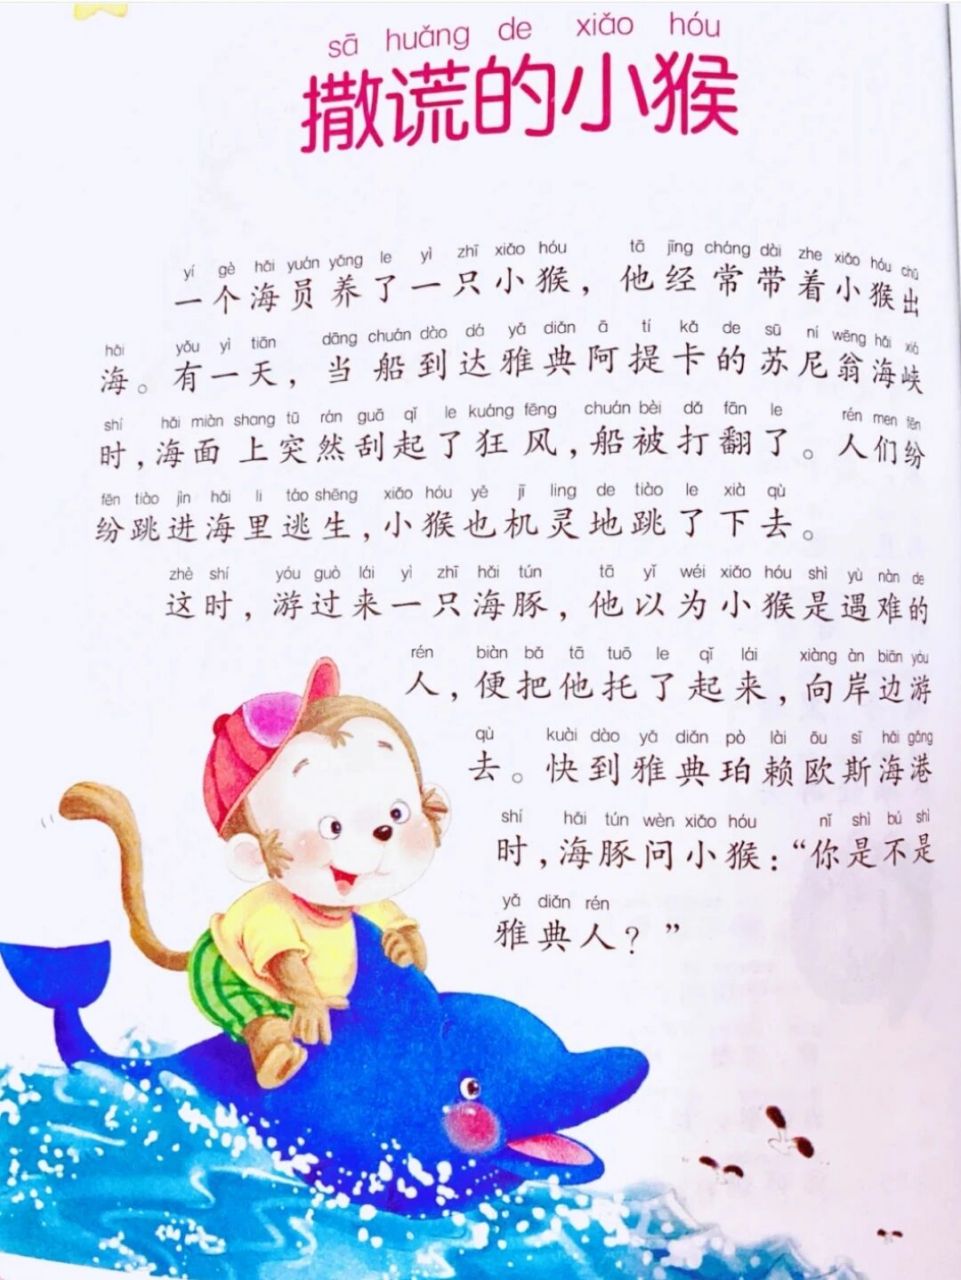 sā huǎng de xiǎo hóu
撒谎的小猴
yí gè hǎi yuán yǎng le yì zhī xiǎo hóu tā jīng cháng dài zhe xiǎo hóu chū
一个海员养了一只小猴，他经常带着小猴出
hǎi yǒu yì tiān dāng chuán dào dá yǎ diǎn ā tí kǎ de sū ní wēng hǎi xiá
海。有一天，当船到达雅典阿提卡的苏尼翁海峡
shí hǎi miàn shang tū rán guā qǐ le kuáng fēng chuán bèi dǎ fān le rén men fēn
时，海面上突然刮起了狂风，船被打翻了。人们纷
fēn tiào jìn hǎi li táo shēng xiǎo hóu yě jī ling de tiào le xià qù
纷跳进海里逃生，小猴也机灵地跳了下去。
zhè shí yóu guò lái yì zhī hǎi tún tā yǐ wéi xiǎo hóu shì yù nàn de
这时，游过来一只海豚，他以为小猴是遇难的
rén biàn bǎ tā tuō le qǐ lái xiàng àn biān yóu
人，便把他托了起来，向岸边游
qù kuài dào yǎ diǎn pò lài ōu sī hǎi gǎng
去。快到雅典珀赖欧斯海港
shí hǎi tún wèn xiǎo hóu nǐ shì bú shì
时，海豚问小猴：“你是不是
yǎ diǎn rén
雅典人？”